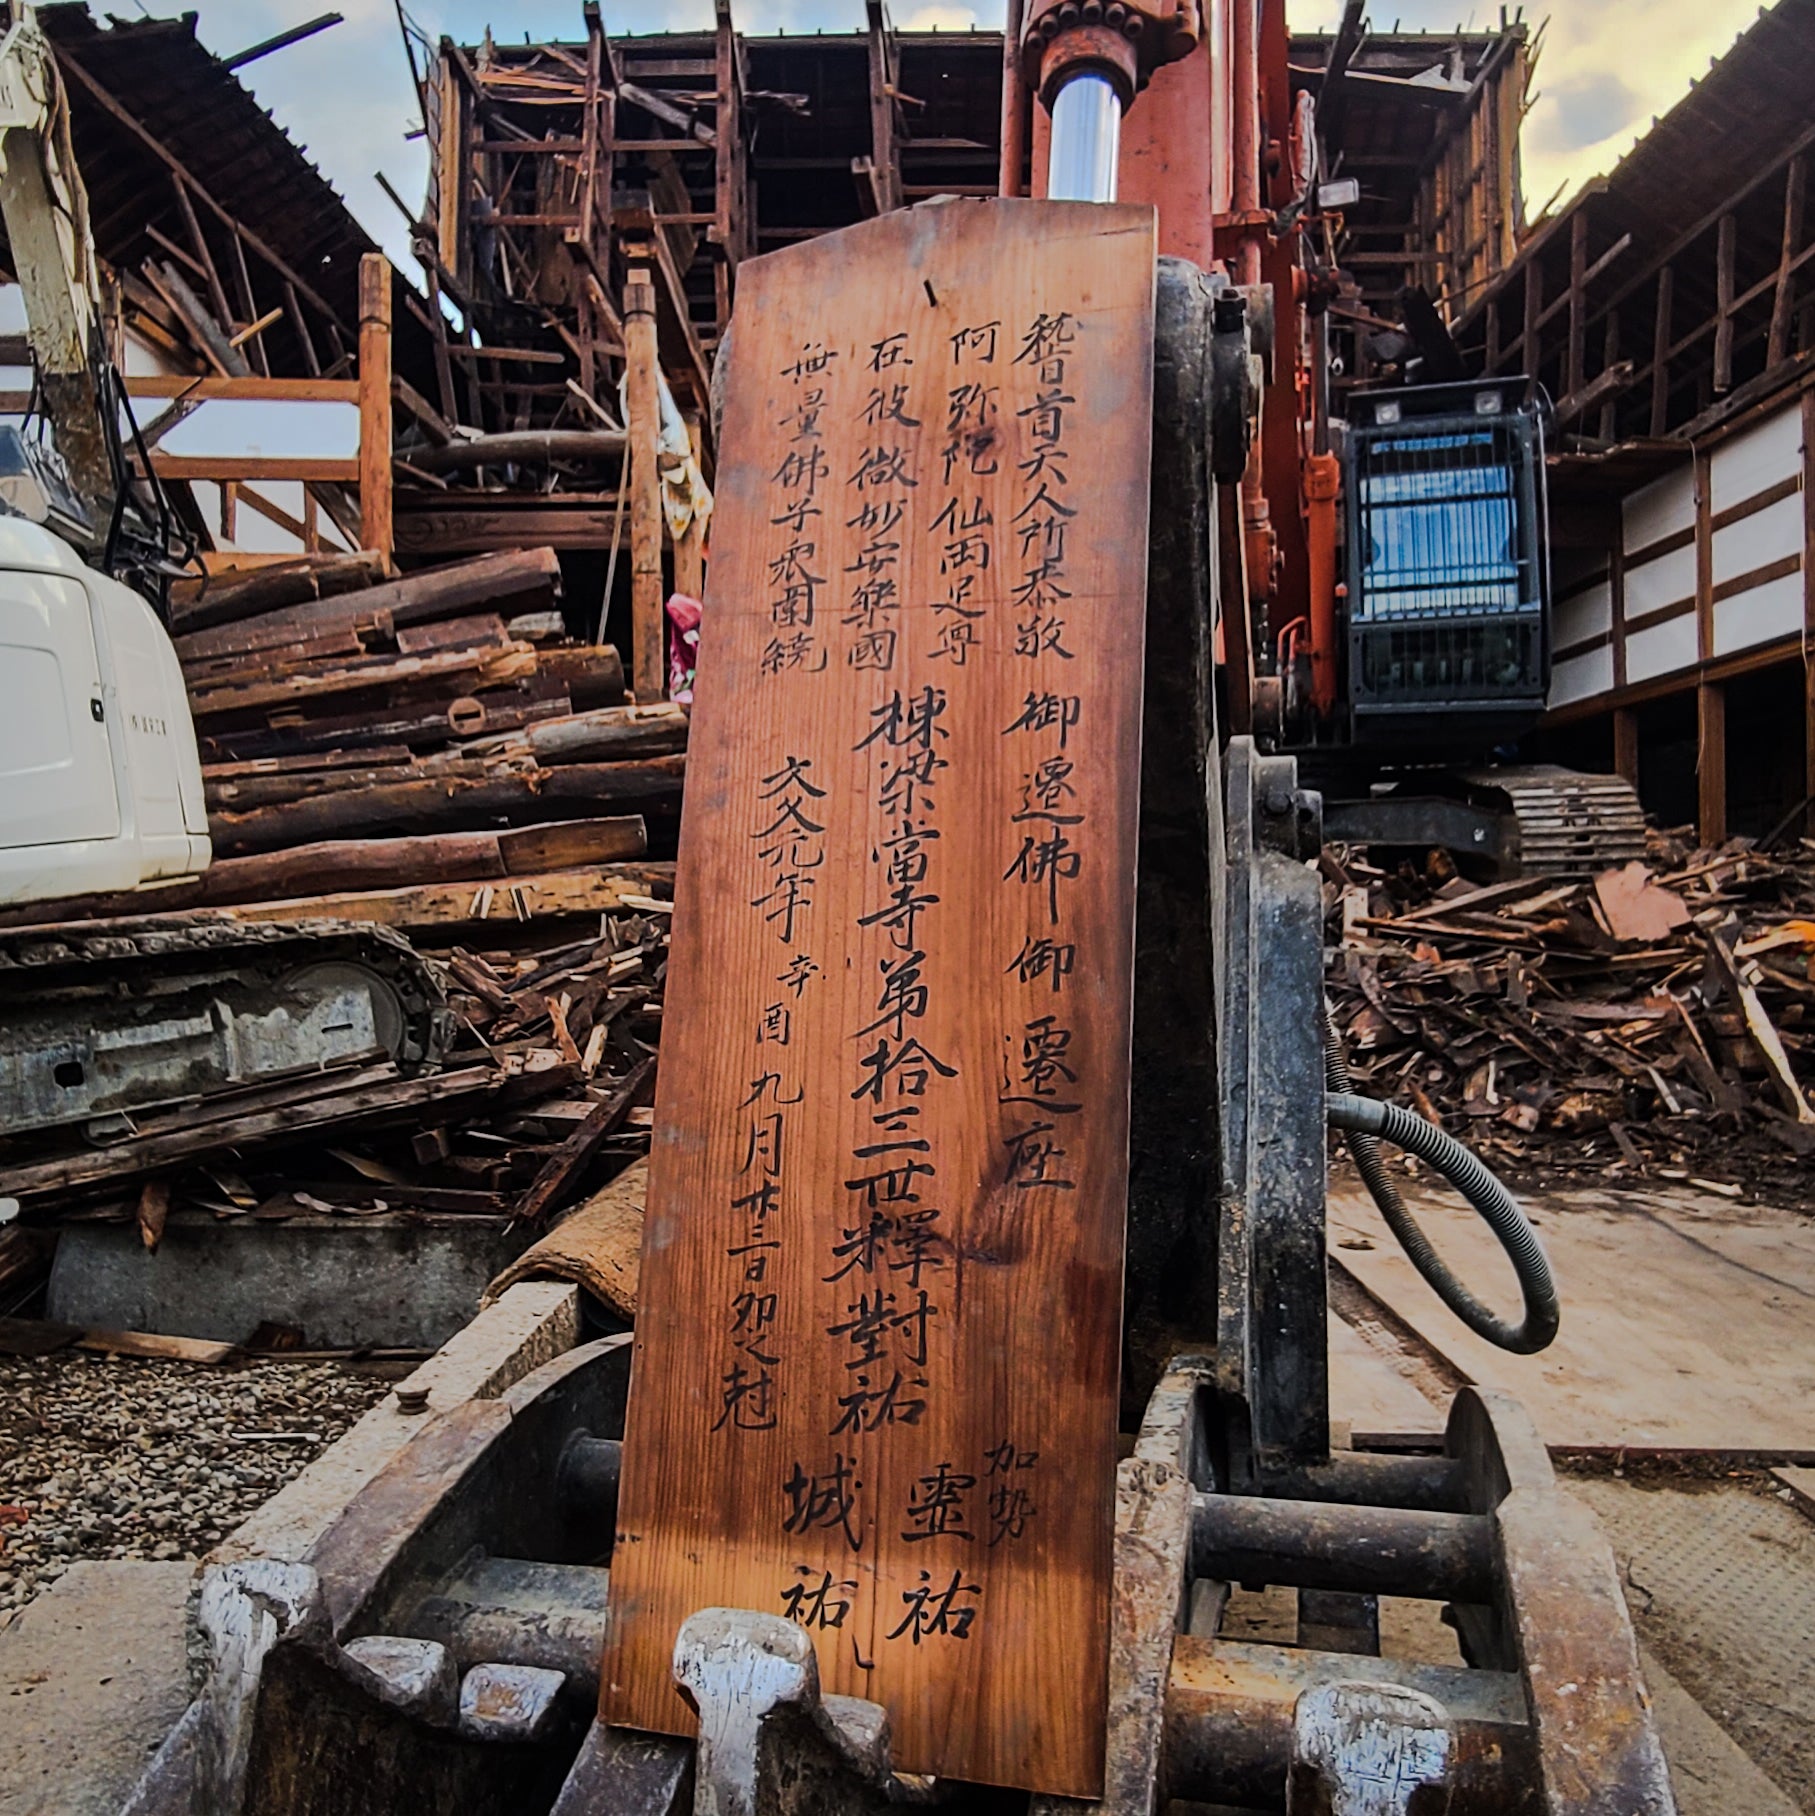 稽首天人所恭敬
阿弥陀仙両足尊
在彼微妙安樂國
無量佛子衆圍繞
御遷佛御遷座
棟梁當寺第拾三世釋對祐
加勢
靈祐
城祐
文久元年辛酉九月廿三日卯之尅